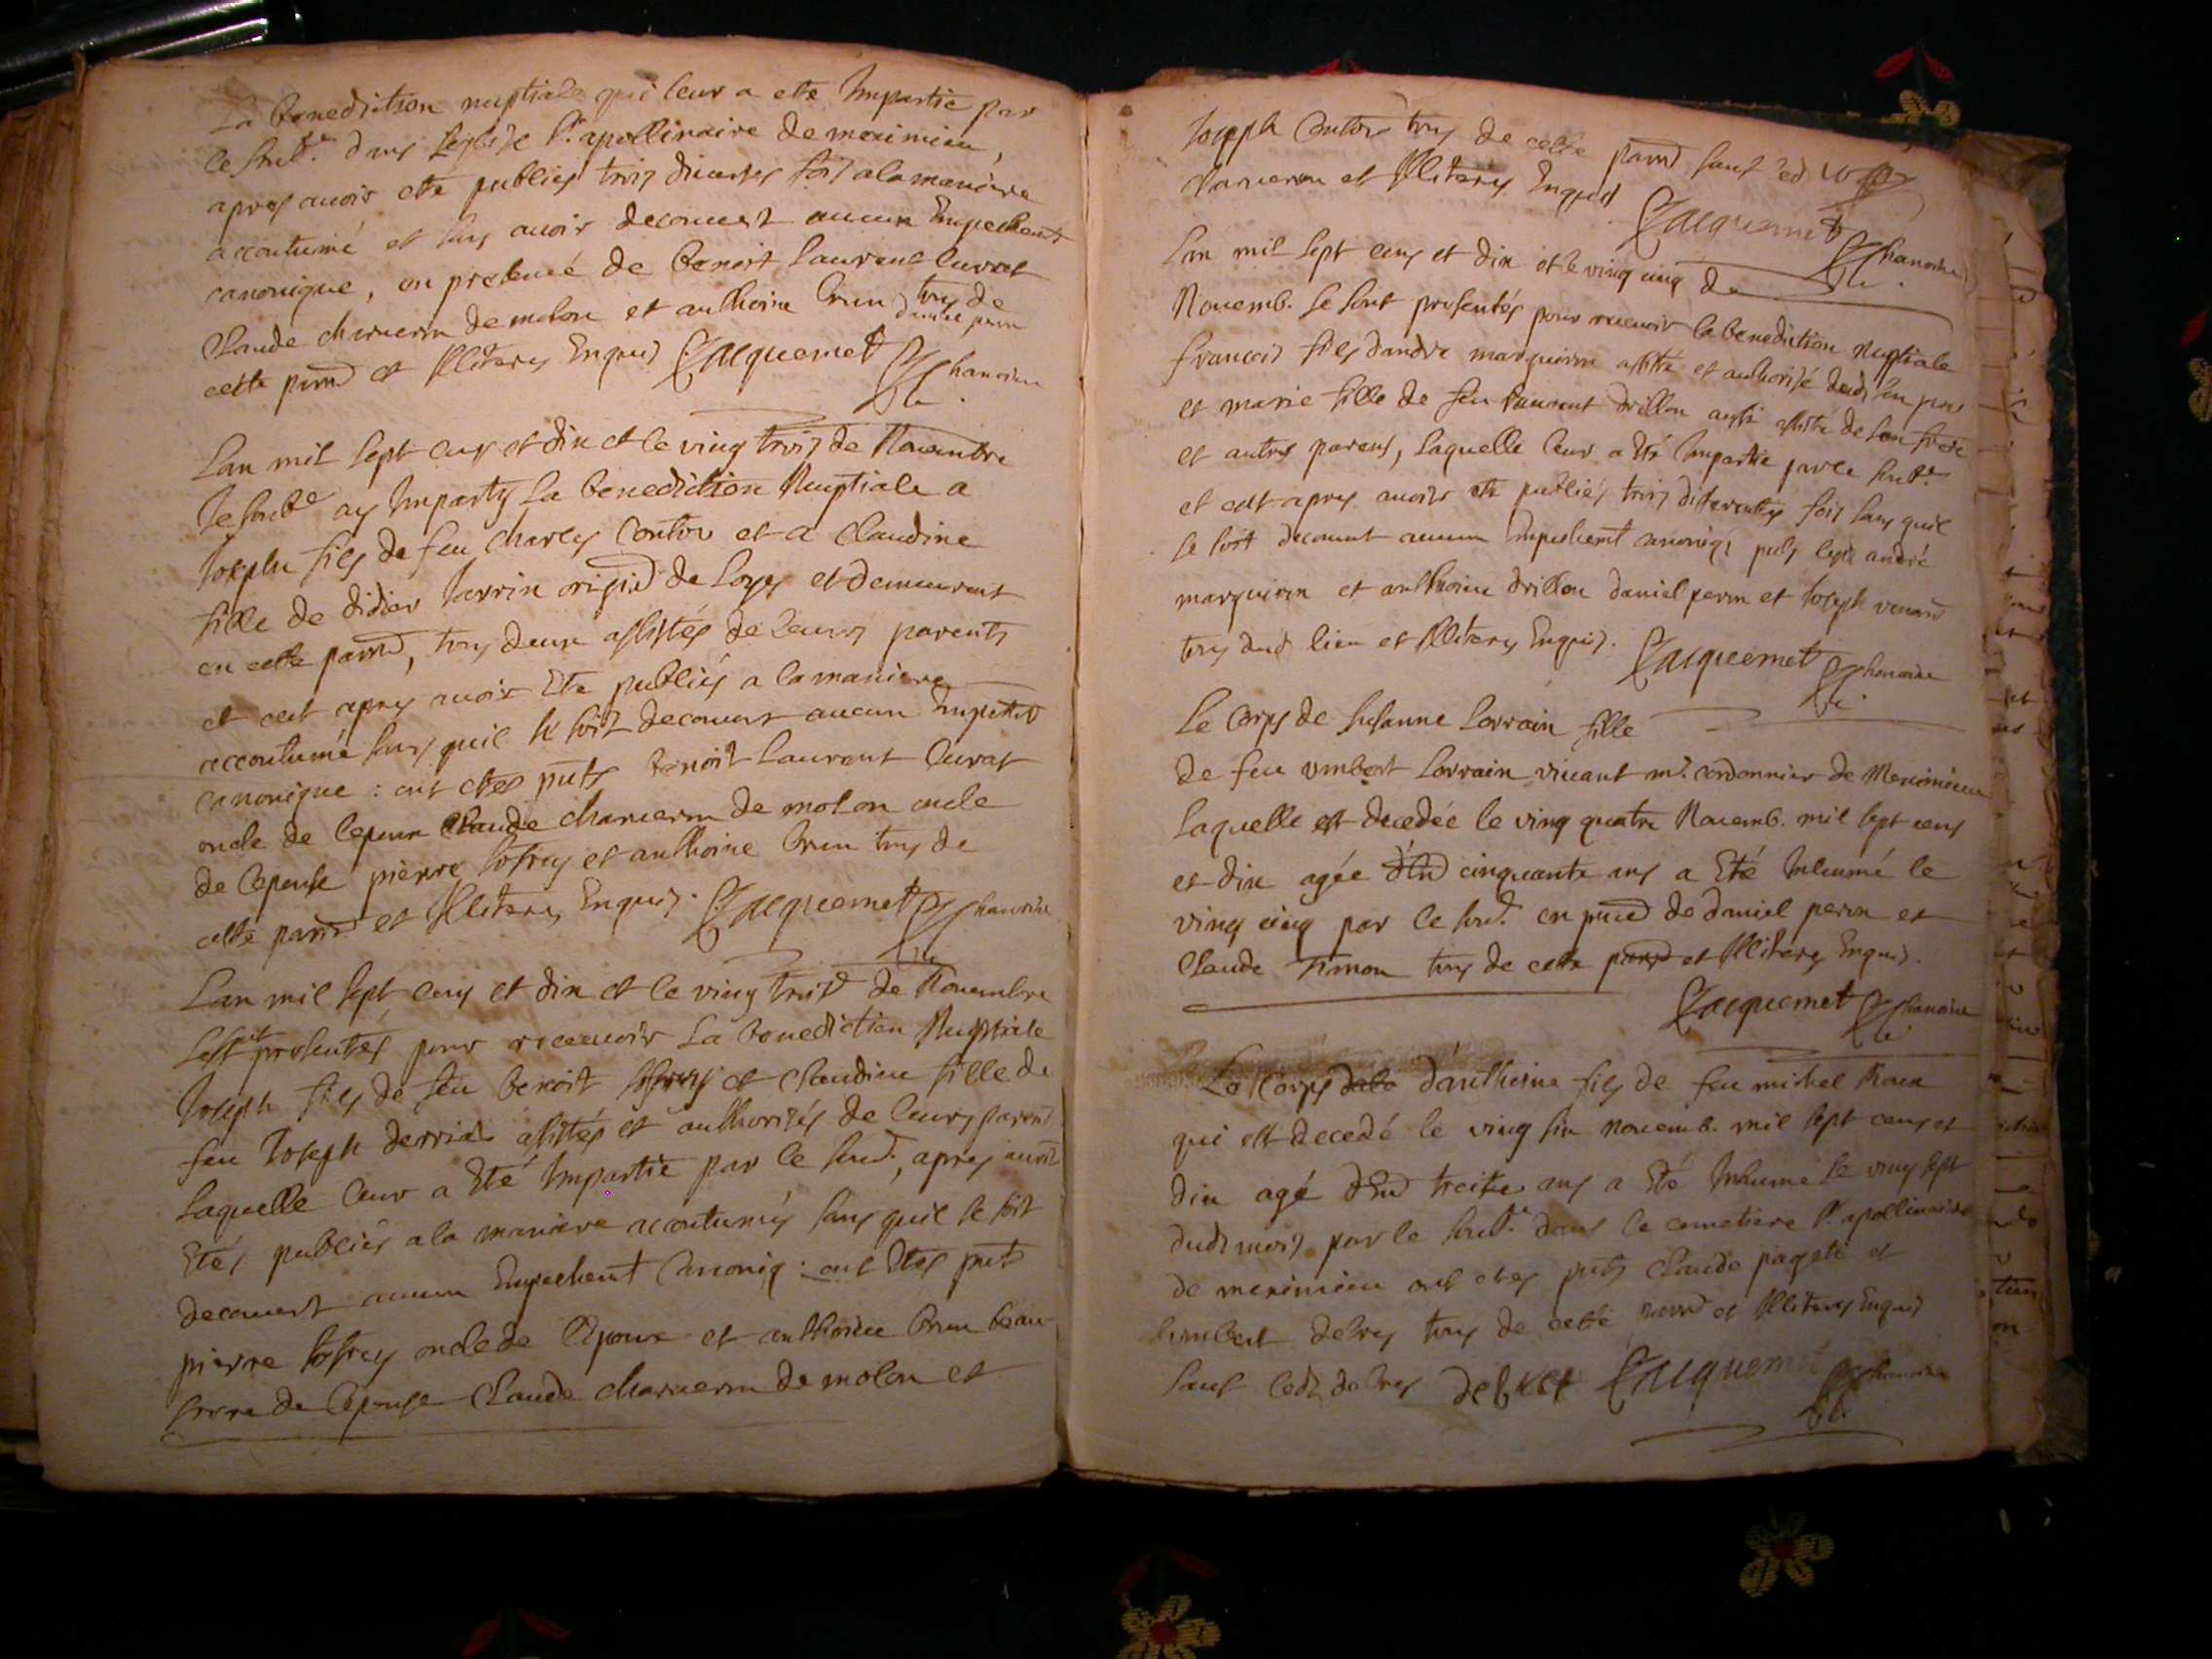 La benediction nuptiale qui leur a ete Impartie par
le soub.e dans leglise St apollinaire de meximieu,
apres auoir ete publies trois diuerses fois a la maniere
accoutumé et sans auoir decouuert aucun Empechemt
canonique, en presence de benoit Laurent Curat
Claude charueron de molon et anthoine brun tous de
cette parro et Illiteres Enquis Jacquemet Chanoine
Lan mil sept cens et dix et le ving trois de Nouembre
Je soub.e ay Imparty La benediction Nuptiale a
Joseph fils de feu charles Contor et a Claudine
fille de didier origin de Loyes et demeurant
en cette parro, tous deux assistés de leurs parents
et cest apres auoir Ete publiés a la maniere
accoutumé sans quil se soit decouuert aucun
canonique : ont etes pnts benoit Laurent Curat
oncle de lepoux Claude charueron de molon oncle
de lepouse pierre et anthoine brun tous de
cette parro et Illiteres Enquis. Jacquemet Chanoine
Lan mil sept cens et dix et le ving trois de Nouembre
se sont presentés pour receuoir La benediction Nuptiale
Joseph fils de feu benoit et Claudine fille de
feu Joseph assistés et authorisés de leurs parens
Laquelle leur a Eté Impartie par le soub., apres auoir
Etés publiés a la maniere accoutumés sans quil se soit
decouuert aucun Empechent Canoniq : ont Etes pnts
pierre oncle de lépoux et anthoine brun beau
frere de lépouse Claude charueron de molon et
Joseph Contor tous de cette parro sauf led
charueron et Illiteres Enquis
Jacquemet Chanoine
Lan mil sept cens et dix et le ving cinq de
Nouemb. se sont presentés pour receuoir la benediction Nuptiale
francois fils dandre marguiron assisté et authorisé dud son pere
et marie fille de feu Laurent drillon aussi assisté de son frere
et autres parens, Laquelle leur a Eté Impartie par le soub.e
et cest apres auoir ete publiés trois differentes fois sans quil
se soit decouuert aucun Empechemt canoniq, andré
marguiron et anthoine drillon daniel peron et Joseph
tous dud lieu et Illiteres Enquis. Jacquemet Chanoine
Le corps de Susanne Lorrain fille
de feu umbert Lorrain viuant mt cordonnier de Meximieu
Laquelle est decedée le ving quatre Nouemb. mil sept cens
et dix agée cinquante ans a Eté Inhumé le
ving cinq par le soub. en pnce de daniel peron et
Claude Simon tous de cette parro et Illiteres Enquis.
Jacquemet Chanoine
Le Corps dela danthoine fils de feu michel Roux
qui est decedé le ving six nouemb. mil sept cens et
dix agé treize ans a Eté Inhumé le ving sept
dud mois par le soub.e dans le cemetiere St apollinaire
de meximieu ont etes pnts Claude pageti et
humbert debrey tous de cette parro et Illiteres Enquis
sauf led debrey Jacquemet Chanoine